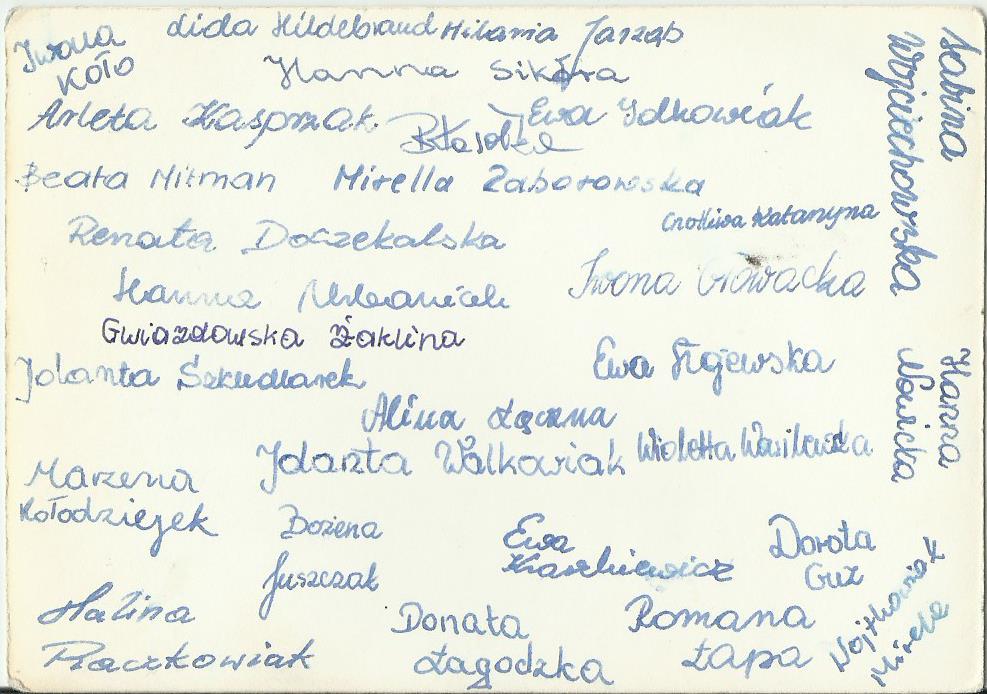 Iwona
Koło
Lida Hildebrand
Hilaria Jarząb
Hanna Sikora
Arleta Kasprzak
Ewa Idkowiak
Beata Mitman
Mirella Zaborowska
Cnotliwa Katarzyna
Renata Doczekalska
Hanna Urbaniak
Iwona Głowacka
Gwiazdowska Żaklina
Jolanta Szkudlarek
Ewa
Alina Łączna
Jolanta Walkowiak
Wioletta Wasilewska
Marzena
Kołodziejek
Bożena
Juszczak
Ewa
Kaszkiewicz
Dorota
Guz
Halina
Raczkowiak
Donata
Łagodzka
Romana
Łapa
Wojtkowiak
Mirela
Sabina
Wojciechowska
Hanna
Nowicka